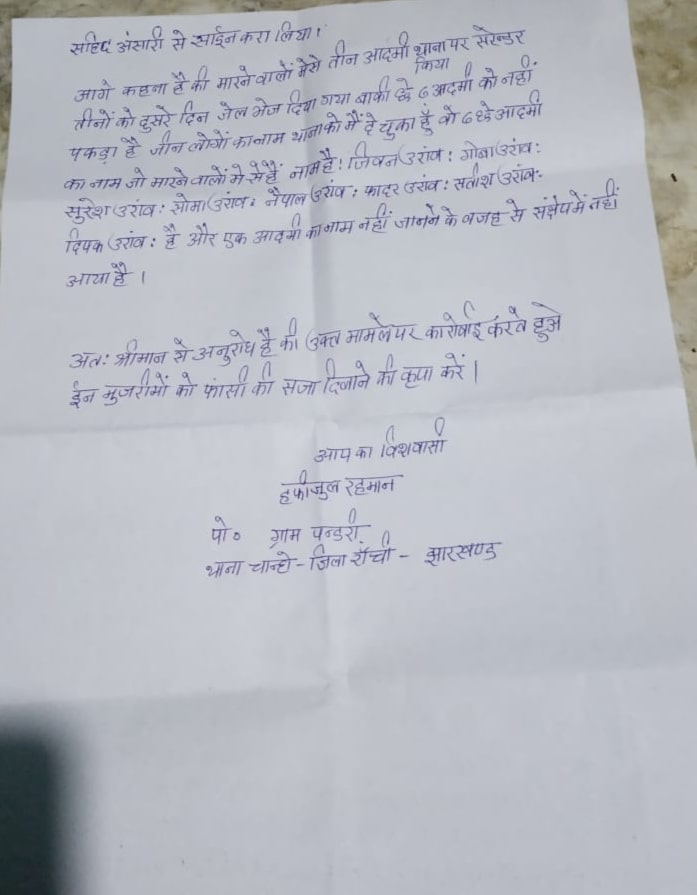 सहिद अंसारी से साईन करा लिया।
आगे कहना है की मारने वालों मेसे तीन आदमी थाना पर सरेन्डर
किया
तीनों को दुसरे दिन जेल भेज दिया गया बाकी छे ६ आदमी को नहीं
पकड़ा है जीन लोगों का नाम थाना को मैं दे चुका हुँ वो ६ छे आदमी
का नाम जो मारने वालों मे से हैं नाम है। जिवन उरांव : गोबा उरांव :
सुरेश उरांव : सोमा उरांव : नेपाल उरांव : फादर उरांव : सतीश उरांव :
दिपक उरांव : है और एक आदमी का नाम नहीं जानने के वजह से संक्षेप में नहीं
आया है ।
अतः श्रीमान से अनुरोध है की उक्त मामले पर कारोवाई करते हुअे
ईन मुजरीमों को फांसी की सजा दिलाने की कृपा करें |
आप का विशवासी
हफीजुल रहमान
पो० ग्राम पन्डरी
थाना चान्हो - जिला राँची - झारखण्ड